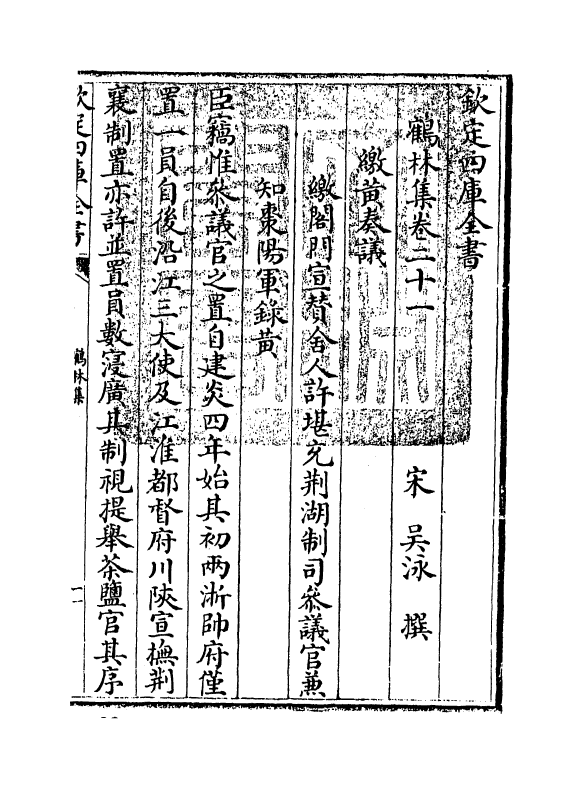 欽定四庫全書
鶴林集卷二十一
宋 吳泳 撰
繳黃奏議
繳閤門宣贊舍人許堪充荆湖制司叅議官兼
知棗陽軍錄黃
臣竊惟叅議官之置自建炎四年始其初兩浙帥府僅
置一員自後沿江三大使及江淮都督府川陜宣撫荆
襄制置亦許並置員數寖廣其制視提舉茶鹽官其序
欽定四庫全書
鶴林集
一